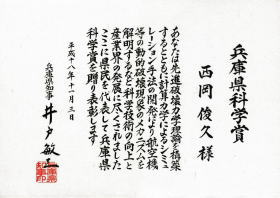 兵庫県科学賞
西岡俊久様
あなたは先進破壊力学理論を構築
するとともに計算力学によるシミュ
レーション手法の開発により航空機
等の動的破壊現象のメカニズムを
解明するなど科学技術の向上と
産業界の発展に尽くされました
ここに県民を代表して兵庫県
科学賞を贈り表彰します
平成十八年十一月三日
兵庫県知事 井戸敏三